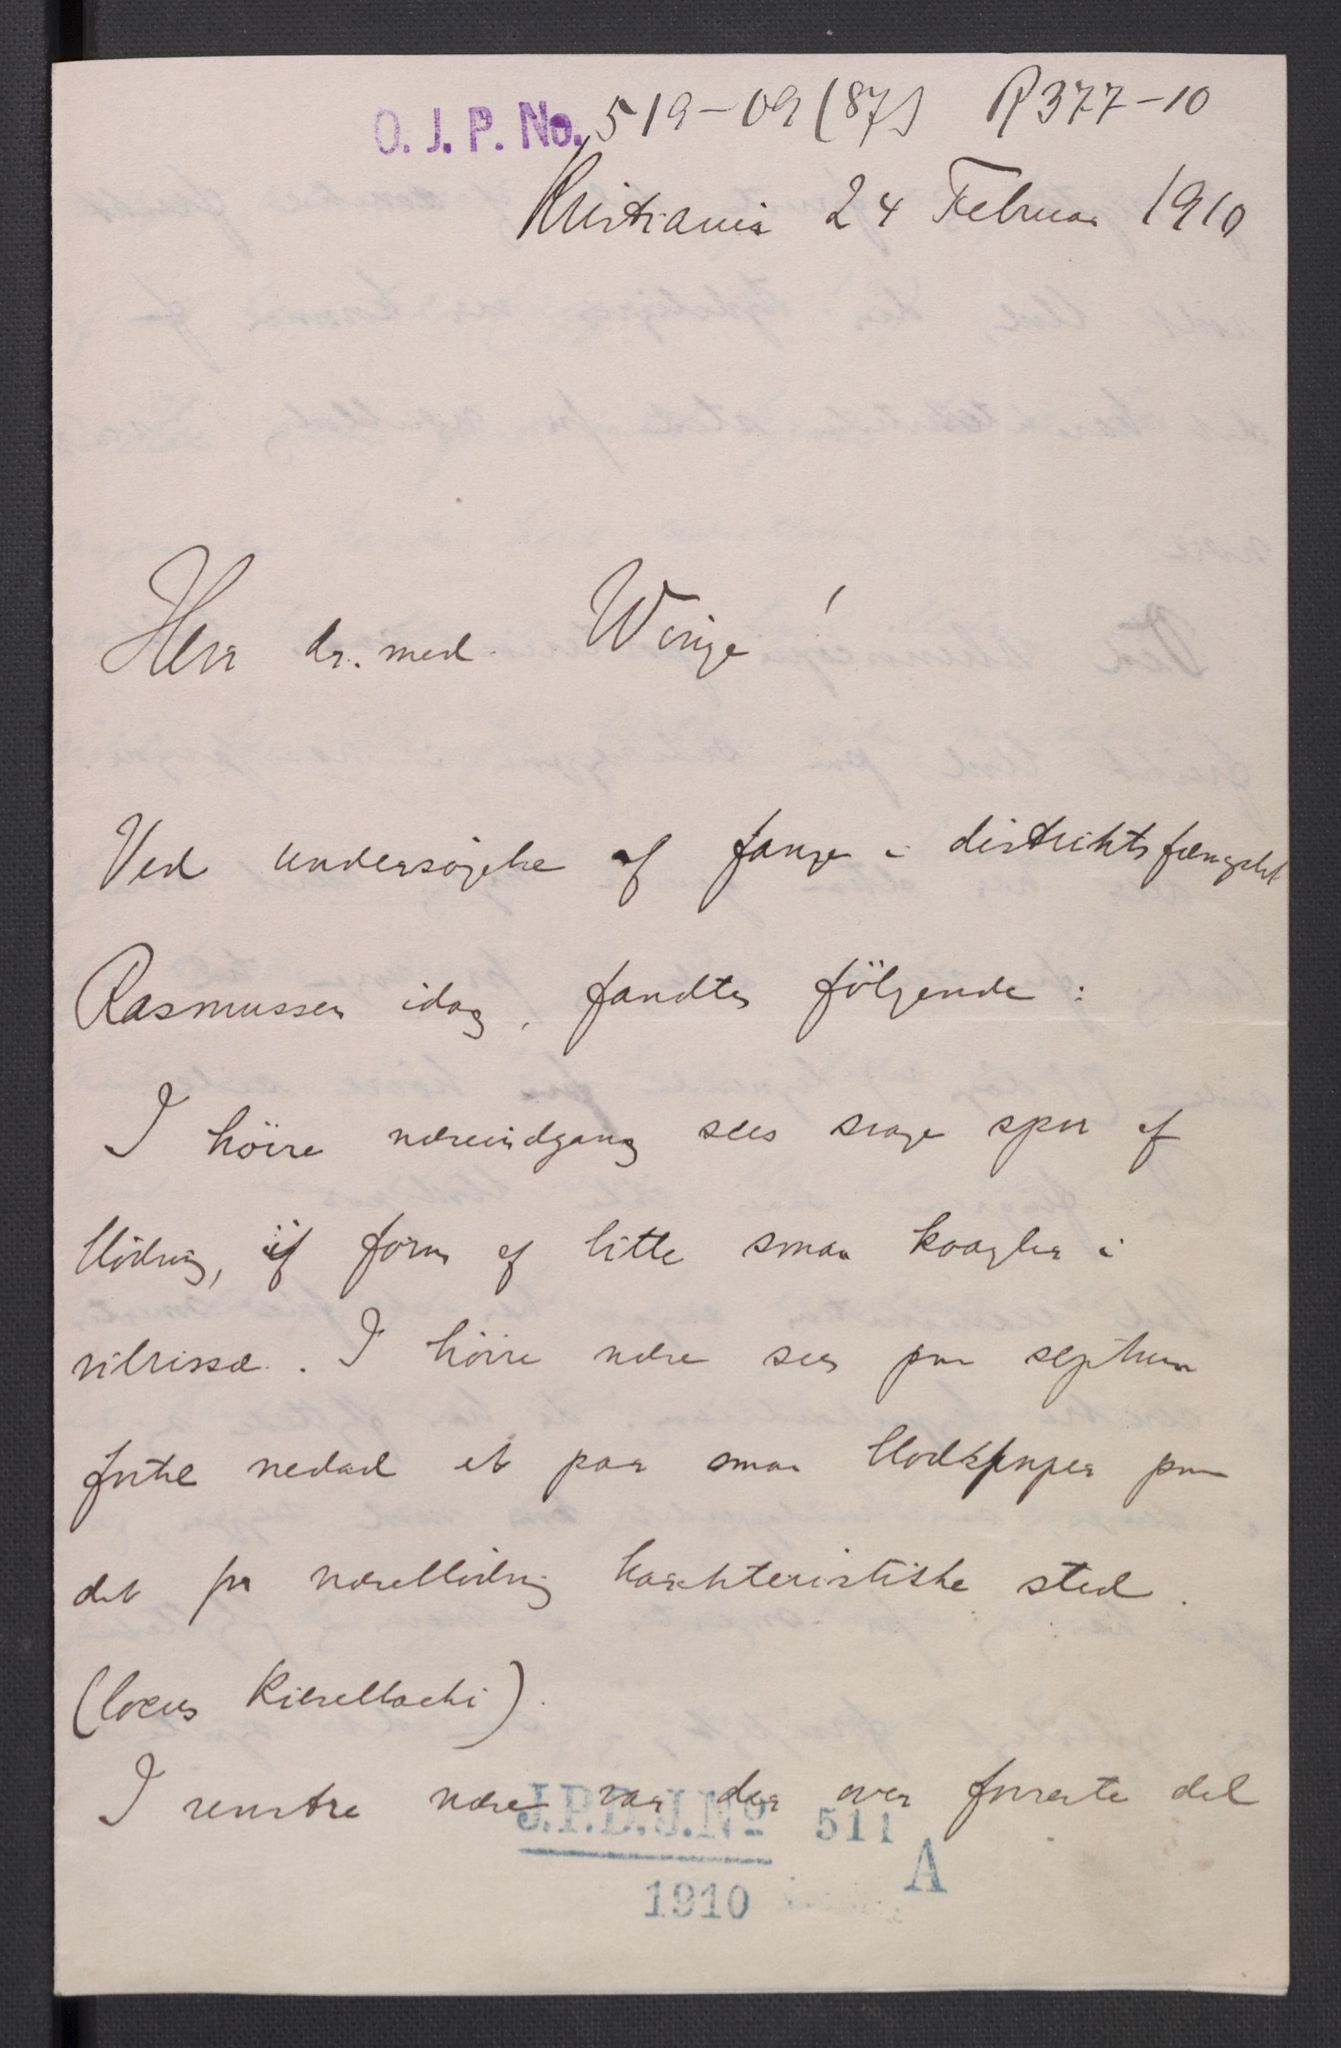 O. J. P. No. 519-09 (87) R377-10
Kristiania 24 Februar 1910
Herr dr. med. Winge!
Ved undersøgelse af fange i distriktsfængslet
Rasmussen idag, fandtes følgende:
I höire næseindgang sees svage spor af
blödning, i form af litte smaa koagler i
vibrissæ. I höire næse sees paa septum
fortil nedad et par smaa blodskorper paa
det for næseblödning karakteristiske sted.
(locus Kisselbachi).
I venstre næse var der over forreste del
J.P.D.J.No 511
A
1910